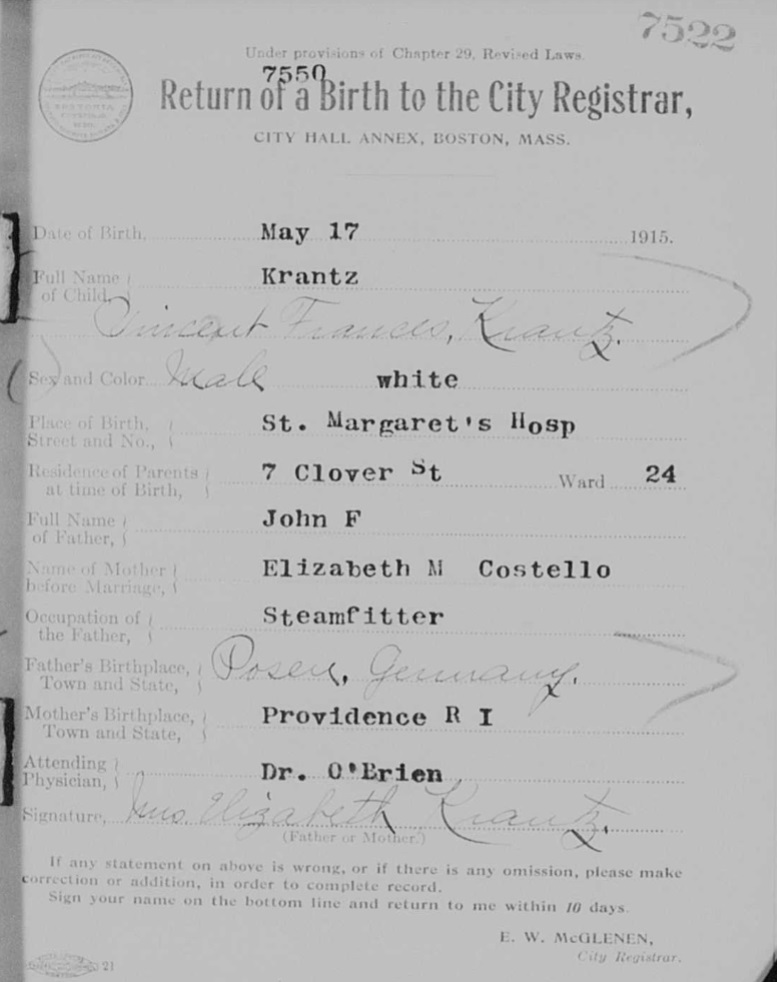 7522
Under provisions of Chapter 29, Revised Laws.
7550
Return of a Birth to the City Registrar,
CITY HALL ANNEX, BOSTON, MASS.
Date of Birth, May 17 1915.
Full Name of Child, Krantz
Vincent Francis, Krantz.
Sex and Color Male white
Place of Birth, Street and No., St. Margaret's Hosp
Residence of Parents at time of Birth, 7 Clover St Ward 24
Full Name of Father, John F
Name of Mother before Marriage, Elizabeth M Costello
Occupation of the Father, Steamfitter
Father's Birthplace, Town and State, Posen, Germany.
Mother's Birthplace, Town and State, Providence R I
Attending Physician, Dr. O'Brien
Signature, Mrs Elizabeth Krantz.
(Father or Mother.)
If any statement on above is wrong, or if there is any omission, please make
correction or addition, in order to complete record.
Sign your name on the bottom line and return to me within 10 days.
E. W. McGLENEN,
City Registrar.
21